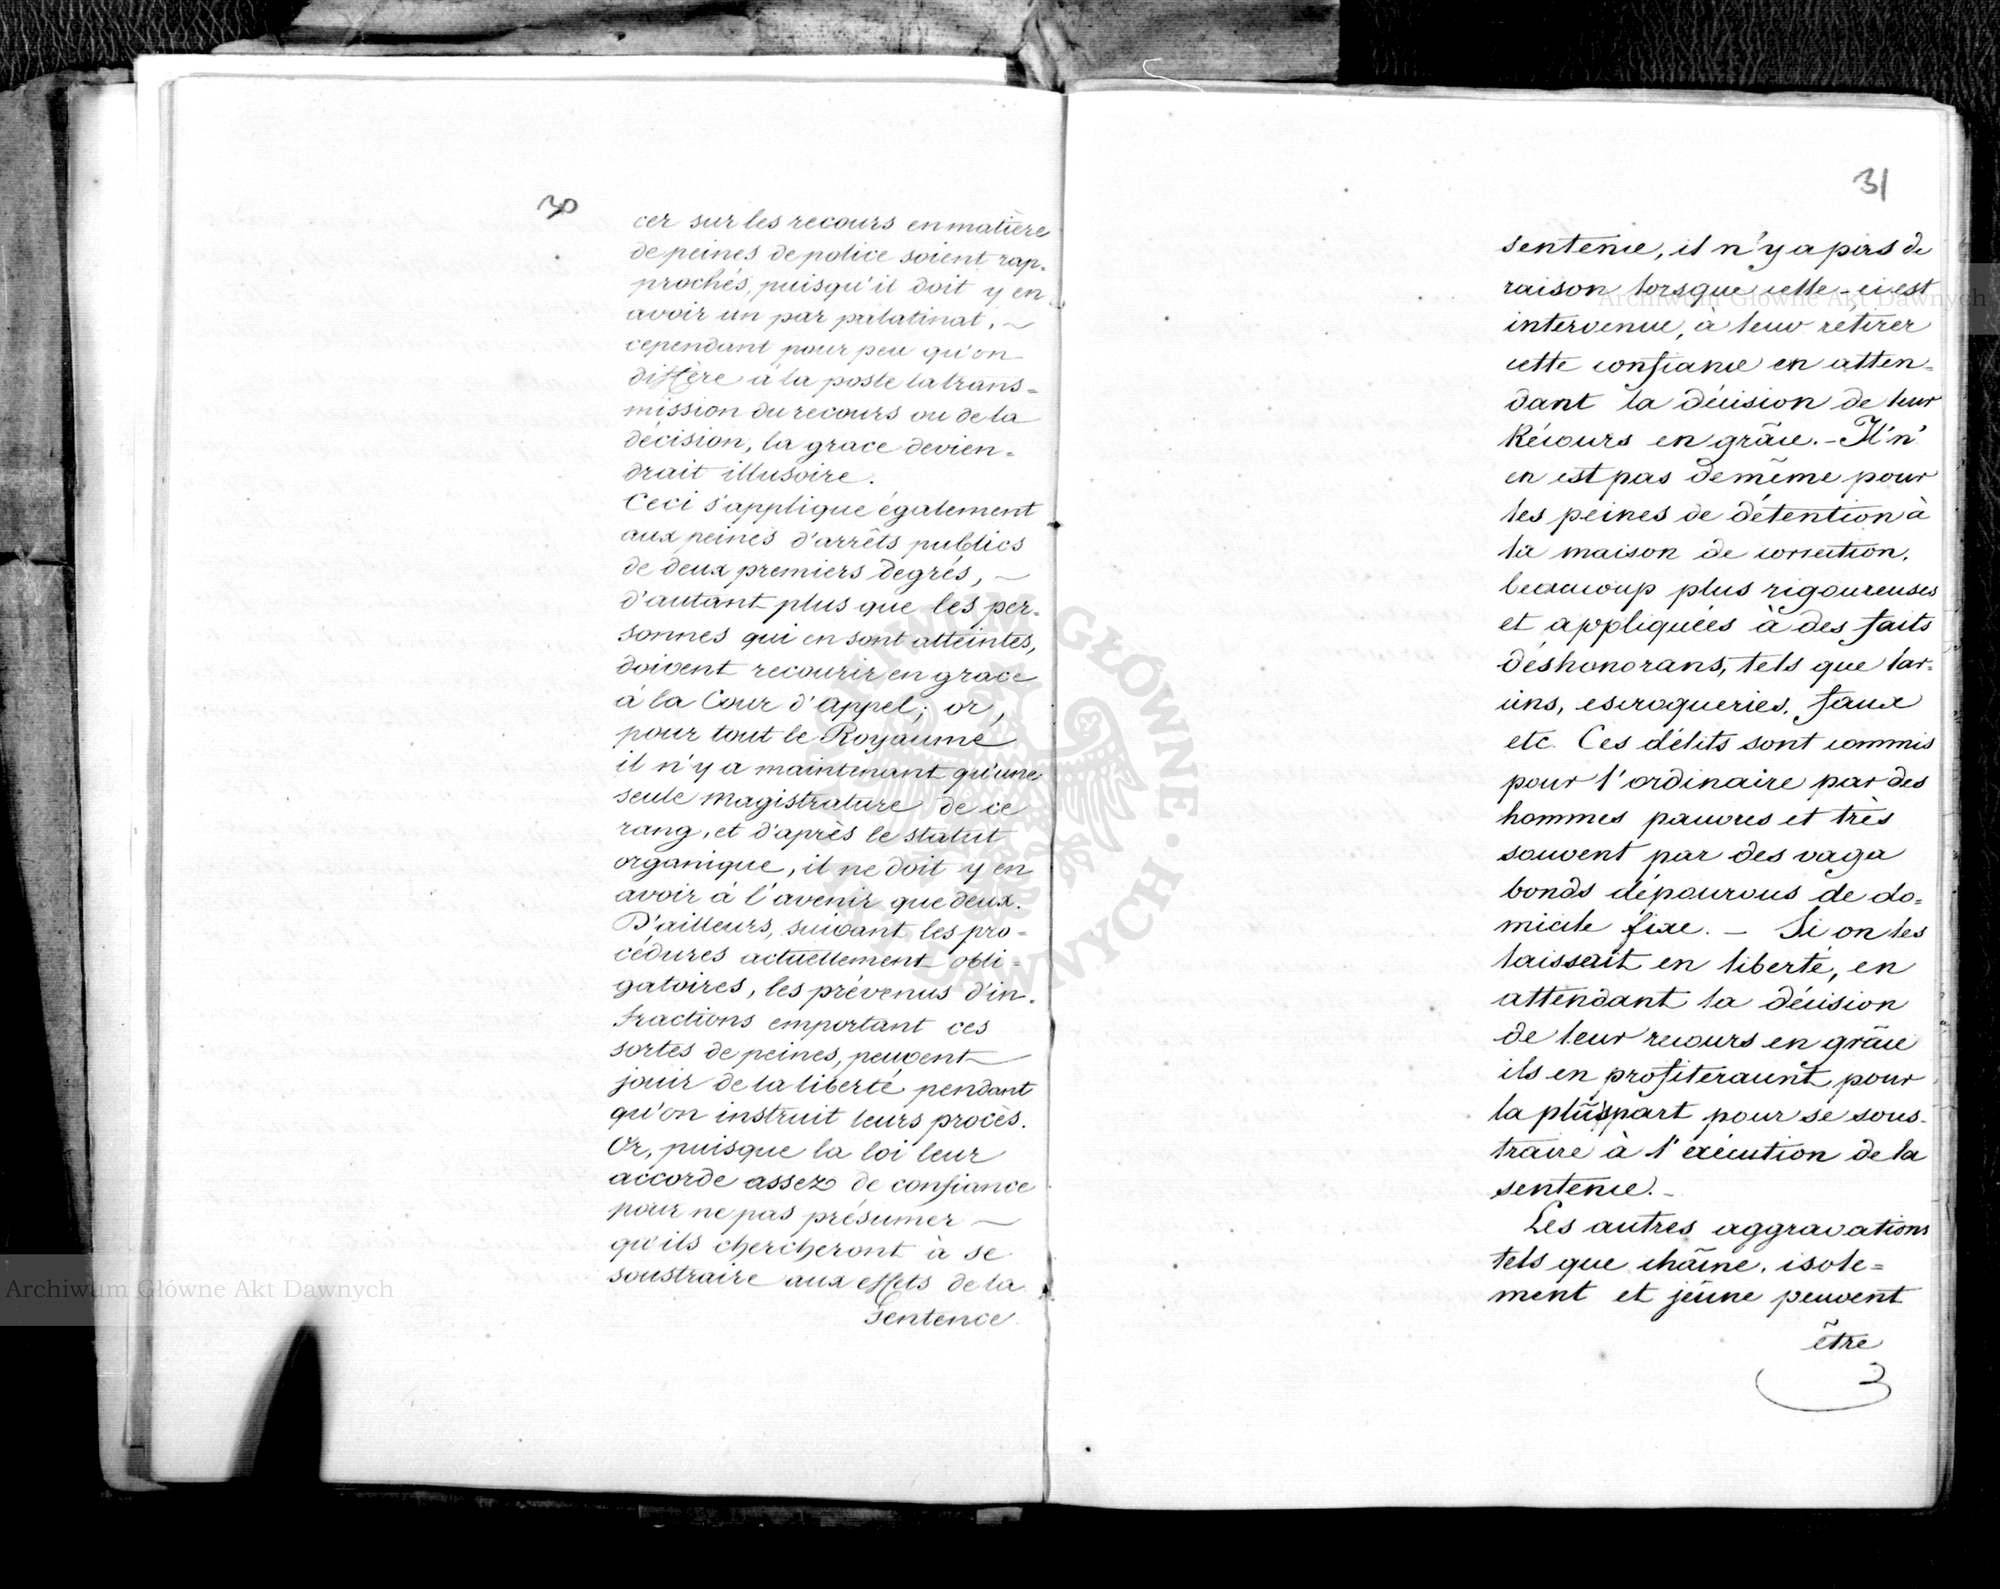 30
cer sur les recours en matière
de peines de police soient rap-
prochés, puisqu'il doit y en
avoir un par palatinat, ~
cependant pour peu qu'on
diffère à la poste la trans=
mission du recours ou de la
décision, la grace devien=
drait illusoire.
Ceci s'applique également
aux peines d'arrêts publics
de deux premiers degrés, ~
d'autant plus que les per-
sonnes qui en sont atteintes,
doivent recourir en grace
à la Cour d'appel; or,
pour tout le Royaume
il n'y a maintenant qu'une
seule magistrature de ce
rang, et d'après le statut
organique, il ne doit y en
avoir à l'avenir que deux.
D'ailleurs, suivant les pro=
cédures actuellement obli=
gatoires, les prévenus d'in-
fractions emportant ces
sortes de peines, peuvent
jouir de la liberté pendant
qu'on instruit leurs procès.
Or, puisque la loi leur
accorde assez de confiance
pour ne pas présumer ~
qu'ils chercheront à se
soustraire aux effets de la
Sentence
31
sentence, il n'y a pas de
raison lorsque celle-ci est
intervenue, à leur rétirer
cette confiance en atten=
dant la décision de leur
Récours en grâce. - Il n'
en est pas de même pour
les peines de détention à
la maison de correction,
beaucoup plus rigoureuses
et appliquées à des faits
déshonorans, tels que lar=
cins, escroqueries, faux
etc. Ces délits sont commis
pour l'ordinaire par des
hommes pauvres et très
souvent par des vaga
bonds dépourvus de do=
micile fixe. - Si on les
laissait en liberté, en
attendant la décision
de leur recours en grâce
ils en profiteraunt pour
la plûspart pour se sous-
traire à l'exécution de la
sentence. -
Les autres aggravations
tels que chaîne, isole=
ment et jeûne peuvent
être
3
Archiwum Główne Akt Dawnych
Archiwum Główne Akt Dawnych
ARCHIWUM GŁÓWNE AKT DAWNYCH